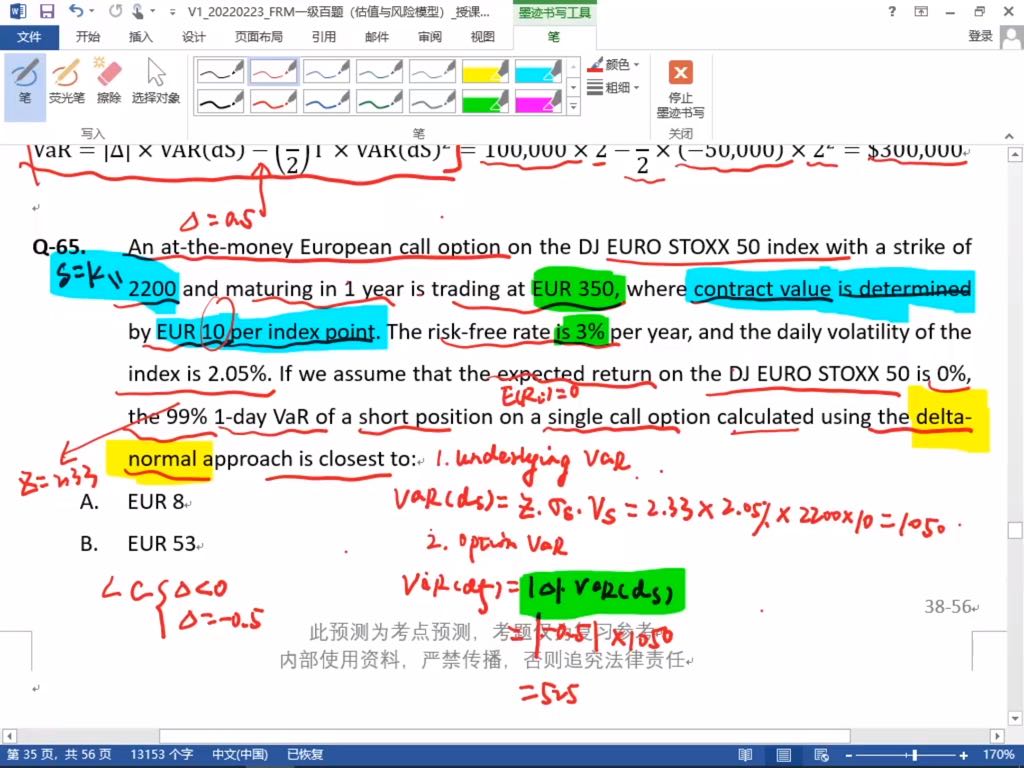 V1_20220223_FRM一级百题（估值与风险模型）_授课...
墨迹书写工具
文件 开始 插入 设计 页面布局 引用 邮件 审阅 视图 笔 登录
笔 荧光笔 擦除 选择对象
颜色
粗细
停止
墨迹书写
写入 笔 关闭
VaR = |Δ| × VAR(dS) − (1/2)Γ × VAR(dS)² = 100,000 × 2 − 1/2 × (−50,000) × 2² = $300,000
Δ = 0.5
Q-65. An at-the-money European call option on the DJ EURO STOXX 50 index with a strike of
S=K
2200 and maturing in 1 year is trading at EUR 350, where contract value is determined
by EUR 10 per index point. The risk-free rate is 3% per year, and the daily volatility of the
index is 2.05%. If we assume that the expected return on the DJ EURO STOXX 50 is 0%,
E(Ri)=0
the 99% 1-day VaR of a short position on a single call option calculated using the delta-
normal approach is closest to:
1. underlying VaR
Z=2.33
VaR(ds) = Z·σs·Vs = 2.33 × 2.05% × 2200×10 = 1050
A. EUR 8
2. option VaR
B. EUR 53
VaR(df) = |Δ|·VaR(ds)
Δ<0
Δ=-0.5
= |-0.5| × 1050
= 525
38-56
此预测为考点预测，考题仅为复习参考
内部使用资料，严禁传播，否则追究法律责任
第 35 页，共 56 页 13153 个字 中文(中国) 已恢复 170%